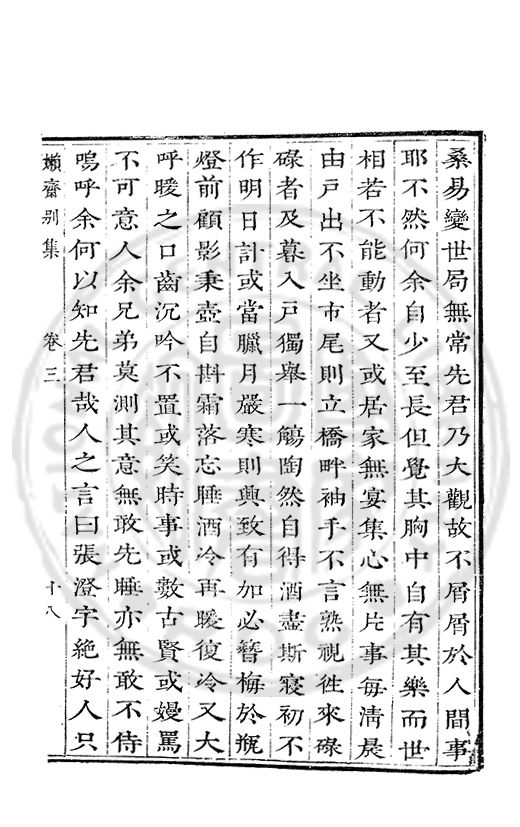 桑易變世局無常先君乃大觀故不屑屑於人間事
耶不然何余自少至長但覺其胸中自有其樂而世
相若不能動者又或居家無宴集心無片事每清晨
由戸出不坐市尾則立橋畔袖手不言熟視往來碌
碌者及暮入戸獨舉一觴陶然自得酒盡斯寝初不
作明日計或當臘月嚴寒則興致有加必簪梅於瓶
燈前顧影秉壺自斟霜落忘睡酒冷再暖復冷又大
呼暖之口齒沉吟不置或笑時事或數古賢或嫚罵
不可意人余兄弟莫測其意無敢先睡亦無敢不侍
嗚呼余何以知先君哉人之言曰張澄宇絶好人只
嬾齋别集 卷三 十八